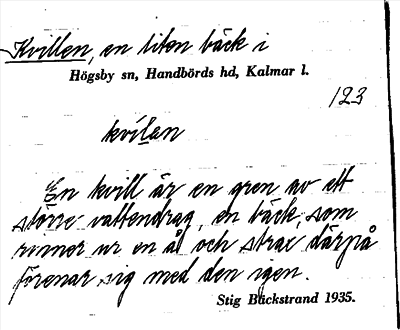 Kvillen, en liten bäck i
Högsby sn, Handbörds hd, Kalmar l.
123
kvílan
En kvill är en gren av ett
större vattendrag, en bäck, som
rinner ur en å och strax därpå
förenar sig med den igen.
Stig Backstrand 1935.